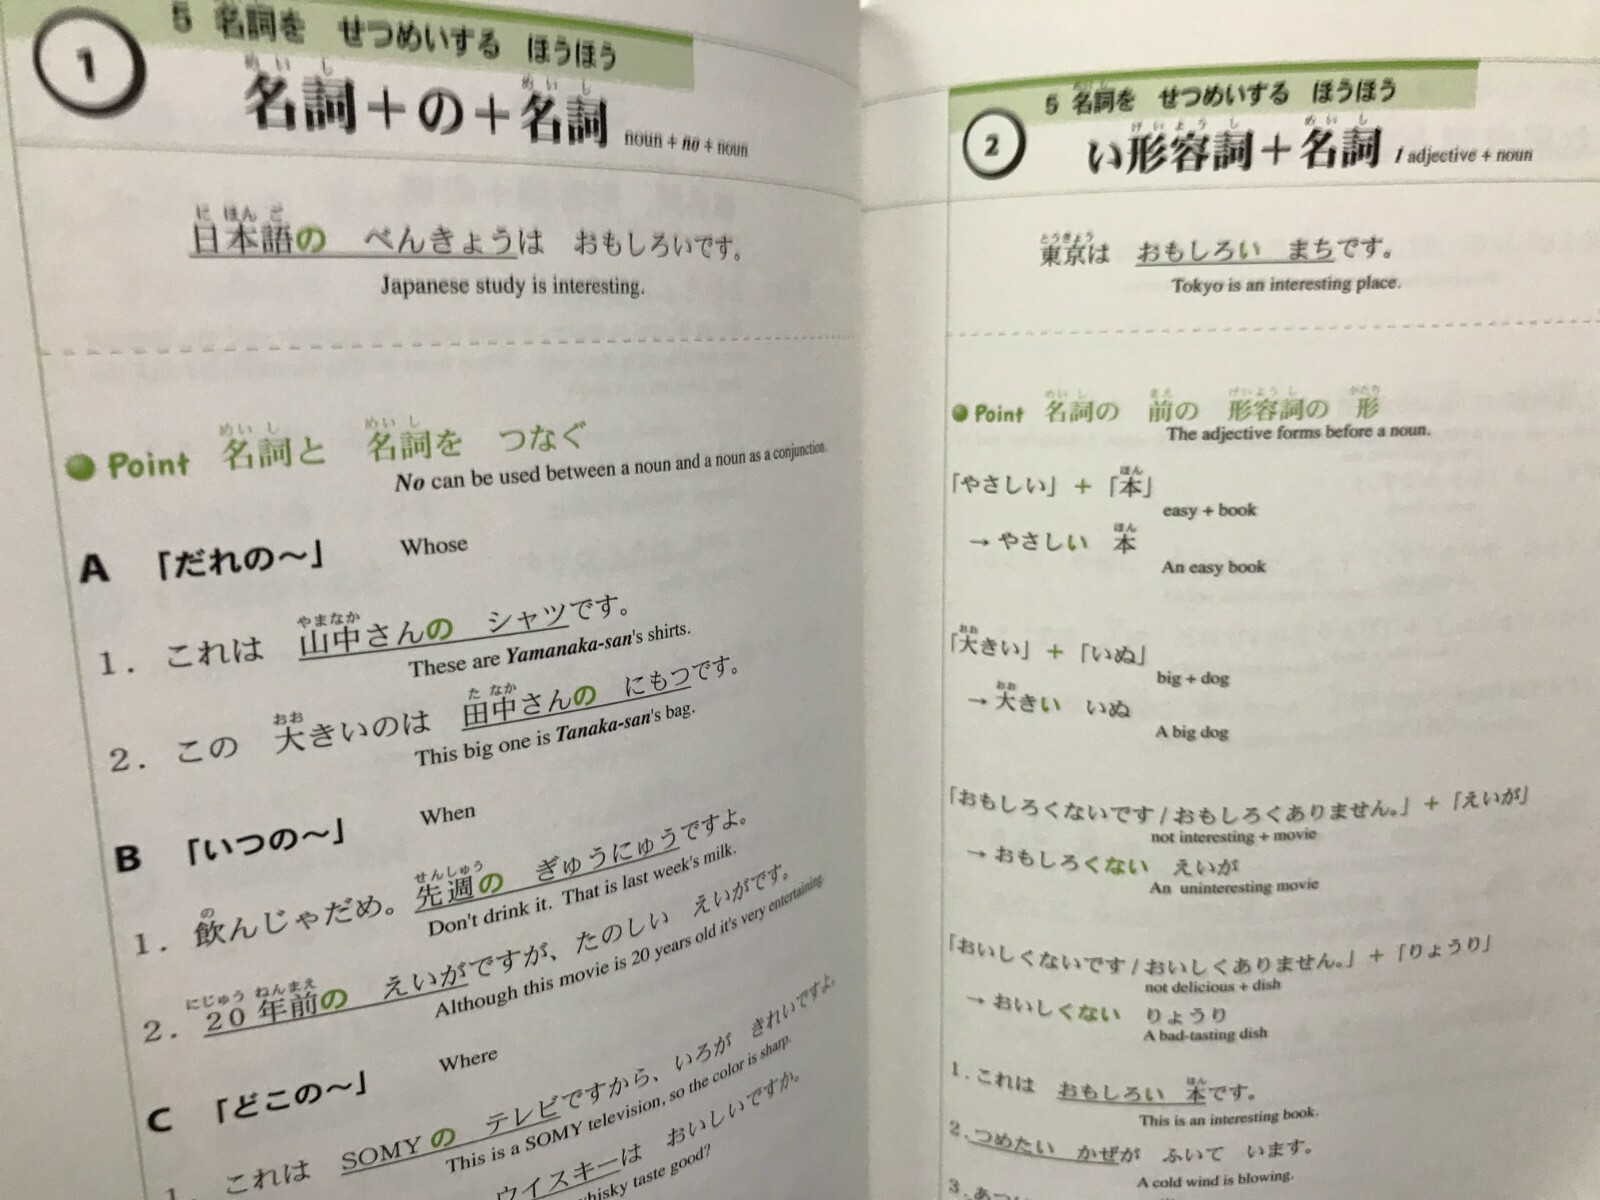 1
5 名詞を せつめいする ほうほう
めいし めいし
名詞＋の＋名詞 noun + no + noun
に ほん ご
日本語の べんきょうは おもしろいです。
Japanese study is interesting.
Point 名詞と 名詞を つなぐ
めいし めいし
No can be used between a noun and a noun as a conjunction.
A 「だれの〜」 Whose
やまなか
1. これは 山中さんの シャツです。
These are Yamanaka-san's shirts.
おお た なか
2. この 大きいのは 田中さんの にもつです。
This big one is Tanaka-san's bag.
B 「いつの〜」 When
の せんしゅう
1. 飲んじゃだめ。先週の ぎゅうにゅうですよ。
Don't drink it. That is last week's milk.
にじゅう ねんまえ
2. 20年前の えいがですが、たのしい えいがです。
Although this movie is 20 years old it's very entertaining.
C 「どこの〜」 Where
1. これは SOMYの テレビですから、いろが きれいですよ。
This is a SOMY television, so the color is sharp.
ウイスキーは おいしいですか。
whisky taste good?
2
5 名詞を せつめいする ほうほう
けいようし めいし
い形容詞＋名詞 I adjective + noun
とうきょう
東京は おもしろい まちです。
Tokyo is an interesting place.
めいし まえ けいようし かたち
Point 名詞の 前の 形容詞の 形
The adjective forms before a noun.
ほん
「やさしい」＋「本」
easy + book
ほん
→ やさしい 本
An easy book
おお
「大きい」＋「いぬ」
big + dog
おお
→ 大きい いぬ
A big dog
「おもしろくないです / おもしろくありません。」＋「えいが」
not interesting + movie
→ おもしろくない えいが
An uninteresting movie
「おいしくないです / おいしくありません。」＋「りょうり」
not delicious + dish
→ おいしくない りょうり
A bad-tasting dish
ほん
1. これは おもしろい 本です。
This is an interesting book.
2. つめたい かぜが ふいて います。
A cold wind is blowing.
3.